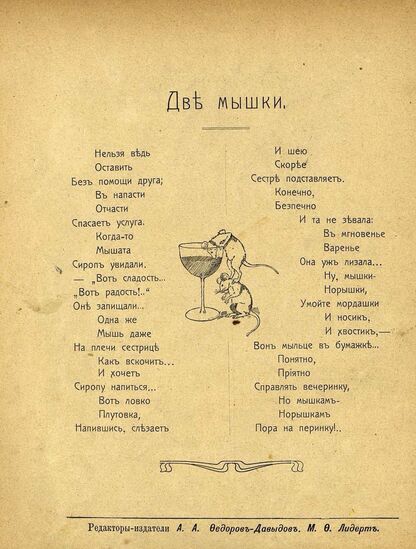 Двѣ мышки.
Нельзя вѣдь
Оставить
Безъ помощи друга;
Въ напасти
Отчасти
Спасаетъ услуга.
Когда-то
Мышата
Сиропъ увидали.
— „Вотъ сладость...
„Вотъ радость!.."
Онѣ запищали...
Одна же
Мышь даже
На плечи сестрицѣ
Какъ вскочитъ...
И хочетъ
Сиропу напиться...
Вотъ ловко
Плутовка,
Напившись, слѣзаетъ
И шею
Скорѣе
Сестрѣ подставляетъ.
Конечно,
Безпечно
И та не зѣвала:
Въ мгновенье
Варенье
Она ужъ лизала...
Ну, мышки-
Норышки,
Умойте мордашки
И носикъ,
И хвостикъ,—
Вонъ мыльце въ бумажкѣ...
Понятно,
Пріятно
Справлять вечеринку,
Но мышкамъ-
Норышкамъ
Пора на перинку!..
Редакторы-издатели А. А. Ѳедоровъ-Давыдовъ. М. Ѳ. Лидертъ.